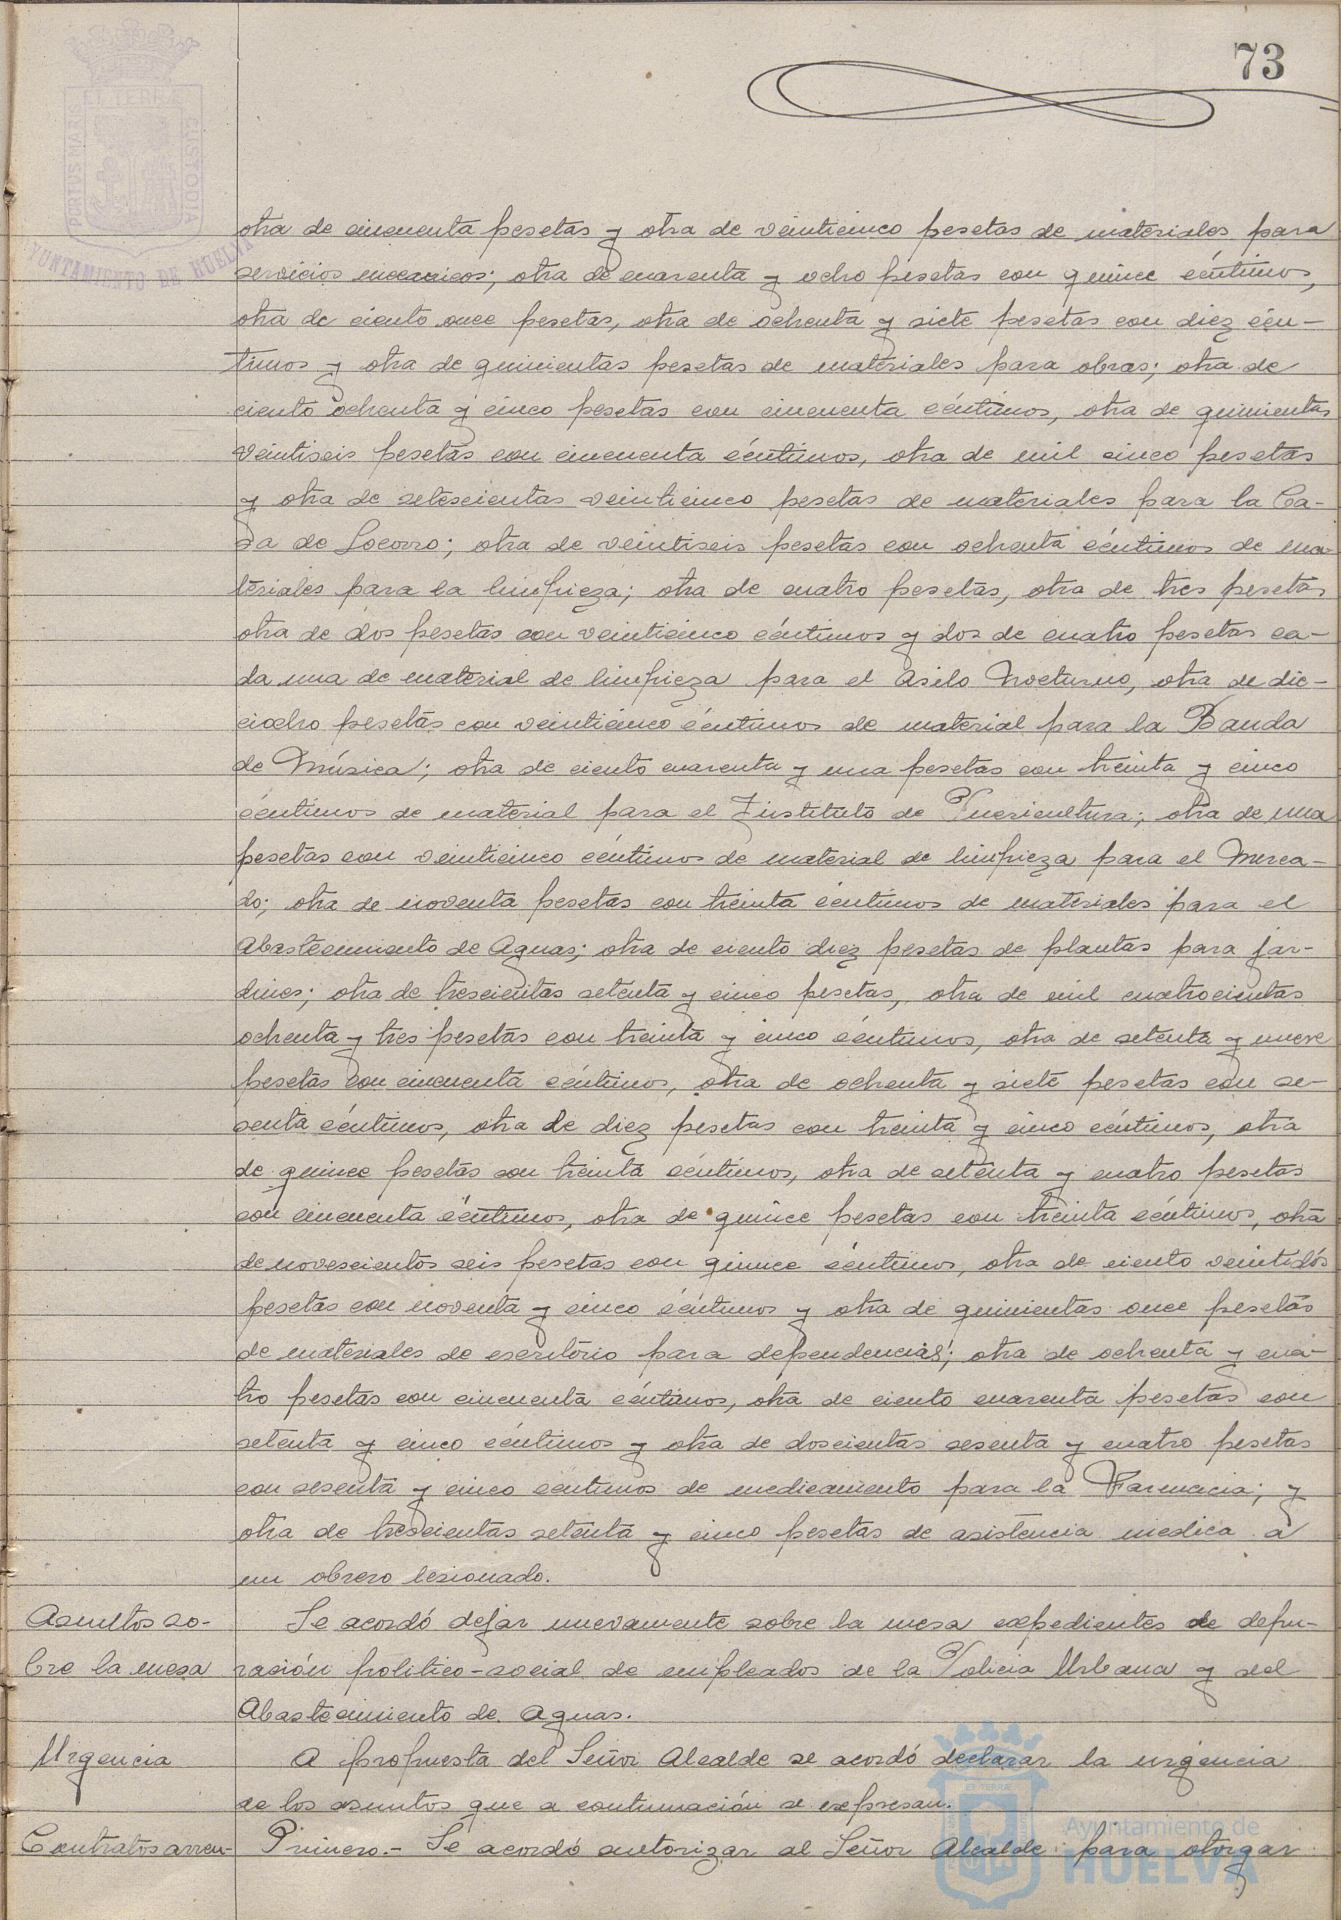 73
PORTUS MARIS ET TERRÆ CUSTODIA
AYUNTAMIENTO DE HUELVA
otra de cincuenta pesetas y otra de veinticinco pesetas de materiales para
servicios mecanicos; otra de cuarenta y ocho pesetas con quince céntimos,
otra de ciento once pesetas, otra de ochenta y siete pesetas con diez cén-
timos y otra de quinientas pesetas de materiales para obras; otra de
ciento ochenta y cinco pesetas con cincuenta céntimos, otra de quinientas
veintiseis pesetas con cincuenta céntimos, otra de mil cinco pesetas
y otra de setescientas veinticinco pesetas de materiales para la Ca-
sa de Socorro; otra de veintiseis pesetas con ochenta céntimos de ma-
teriales para la limpieza; otra de cuatro pesetas, otra de tres pesetas
otra de dos pesetas con veinticinco céntimos y dos de cuatro pesetas ca-
da una de material de limpieza para el Asilo Nocturno, otra de die-
ciocho pesetas con veinticinco céntimos de material para la Banda
de Música; otra de ciento cuarenta y una pesetas con treinta y cinco
céntimos de material para el Instituto de Puericultura; otra de una
pesetas con veinticinco céntimos de material de limpieza para el Merca-
do; otra de noventa pesetas con treinta céntimos de materiales para el
Abastecimiento de Aguas; otra de ciento diez pesetas de plantas para jar-
dines; otra de trescientas setenta y cinco pesetas, otra de mil cuatrocientas
ochenta y tres pesetas con treinta y cinco céntimos, otra de setenta y nueve
pesetas con cincuenta céntimos, otra de ochenta y siete pesetas con se-
senta céntimos, otra de diez pesetas con treinta y cinco céntimos, otra
de quince pesetas con treinta céntimos, otra de setenta y cuatro pesetas
con cincuenta céntimos, otra de quince pesetas con treinta céntimos, otra
de novescientos seis pesetas con quince céntimos, otra de ciento veintidós
pesetas con noventa y cinco céntimos y otra de quinientas once pesetas
de materiales de escritorio para dependencias; otra de ochenta y cua-
tro pesetas con cincuenta céntimos, otra de ciento cuarenta pesetas con
setenta y cinco céntimos y otra de doscientas sesenta y cuatro pesetas
con sesenta y cinco centimos de medicamento para la Farmacia; y
otra de trescientas setenta y cinco pesetas de asistencia medica a
un obrero lesionado.
Asuntos so- Se acordó dejar nuevamente sobre la mesa expedientes de depu-
bre la mesa ración politico-social de empleados de la Policia Urbana y del
Abastecimiento de Aguas.
Urgencia A propuesta del Señor Alcalde se acordó declarar la urgencia
de los asuntos que a continuación se expresan.
Contratos arren- Primero.- Se acordó autorizar al Señor Alcalde para otorgar
Ayuntamiento de
HUELVA